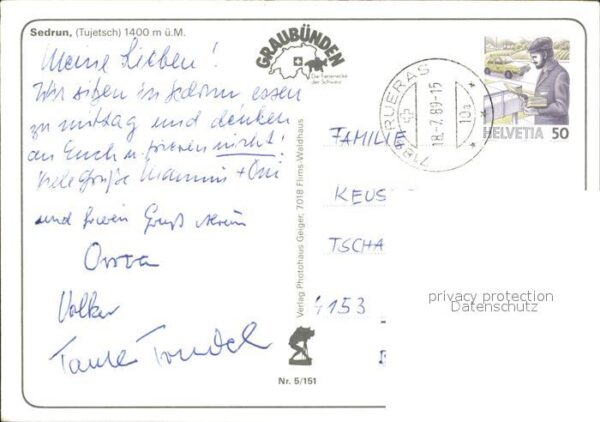 Sedrun, (Tujetsch) 1400 m ü.M.
Meine Lieben!
Wir sitzen in Sedrun essen
zu mittag und denken
an Euch u. frieren nicht!
Viele Grüße +
und Gruß
Volker
Tante
GRAUBÜNDEN
Die Ferienecke
der Schweiz
Verlag Photohaus Geiger, 7018 Flims-Waldhaus
Nr. 5/151
RUERAS
18.-7.89-15
HELVETIA 50
FAMILIE
KEUS
TSCHA
4153
privacy protection
Datenschutz